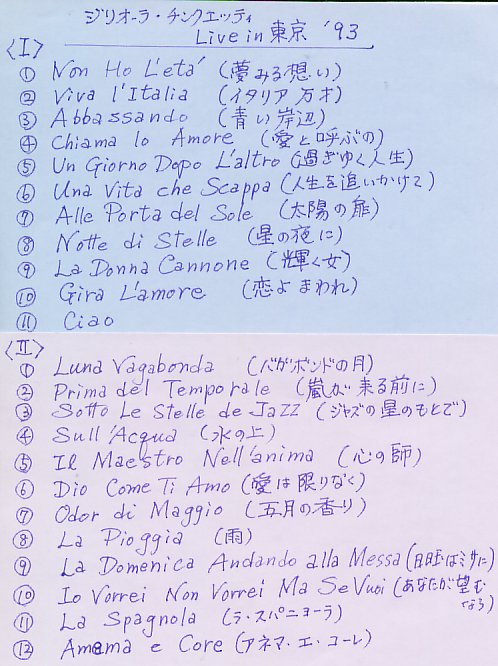 ジリオーラ・チンクエッティ
Live in 東京 '93
〈I〉
① Non Ho L'eta' (夢みる想い)
② Viva l'Italia (イタリア万才)
③ Abbassando (青い岸辺)
④ Chiama lo Amore (愛と呼ぶの)
⑤ Un Giorno Dopo L'altro (過ぎゆく人生)
⑥ Una Vita che Scappa (人生を追いかけて)
⑦ Alle Porta del Sole (太陽の扉)
⑧ Notte di Stelle (星の夜に)
⑨ La Donna Cannone (輝く女)
⑩ Gira L'amore (恋よまわれ)
⑪ Ciao
〈II〉
① Luna Vagabonda (バガボンドの月)
② Prima del Temporale (嵐が来る前に)
③ Sotto Le Stelle de Jazz (ジャズの星のもとで)
④ Sull'Acqua (水の上)
⑤ Il Maestro Nell'anima (心の師)
⑥ Dio Come Ti Amo (愛は限りなく)
⑦ Odor di Maggio (五月の香り)
⑧ La Pioggia (雨)
⑨ La Domenica Andando alla Messa (日曜はミサに)
⑩ Io Vorrei Non Vorrei Ma Se Vuoi (あなたが望む
なら)
⑪ La Spagnola (ラ・スパニョーラ)
⑫ Amema e Core (アネマ・エ・コーレ)